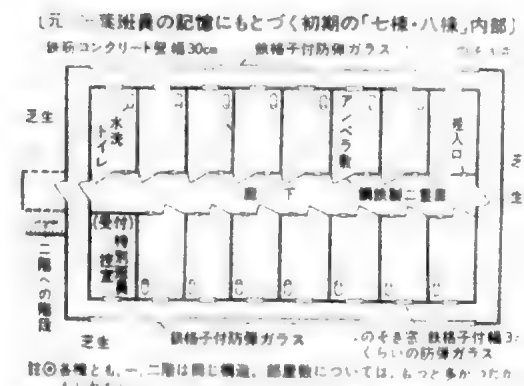 班員の記憶にもとづく初期の「七棟・八棟」内部〕
鉄筋コンクリート壁幅30cm 鉄格子付防弾ガラス
芝生
水洗
トイレ
アンペラ敷
入口
芝生
廊下
鋼鉄製二重扉
(受付)
特別班員
控室
二階への階段
芝生
鉄格子付防弾ガラス
のぞき窓 鉄格子付幅3
くらいの防弾ガラス
註◎各棟とも、一、二階は同じ構造。部屋数については、もっと多かったか